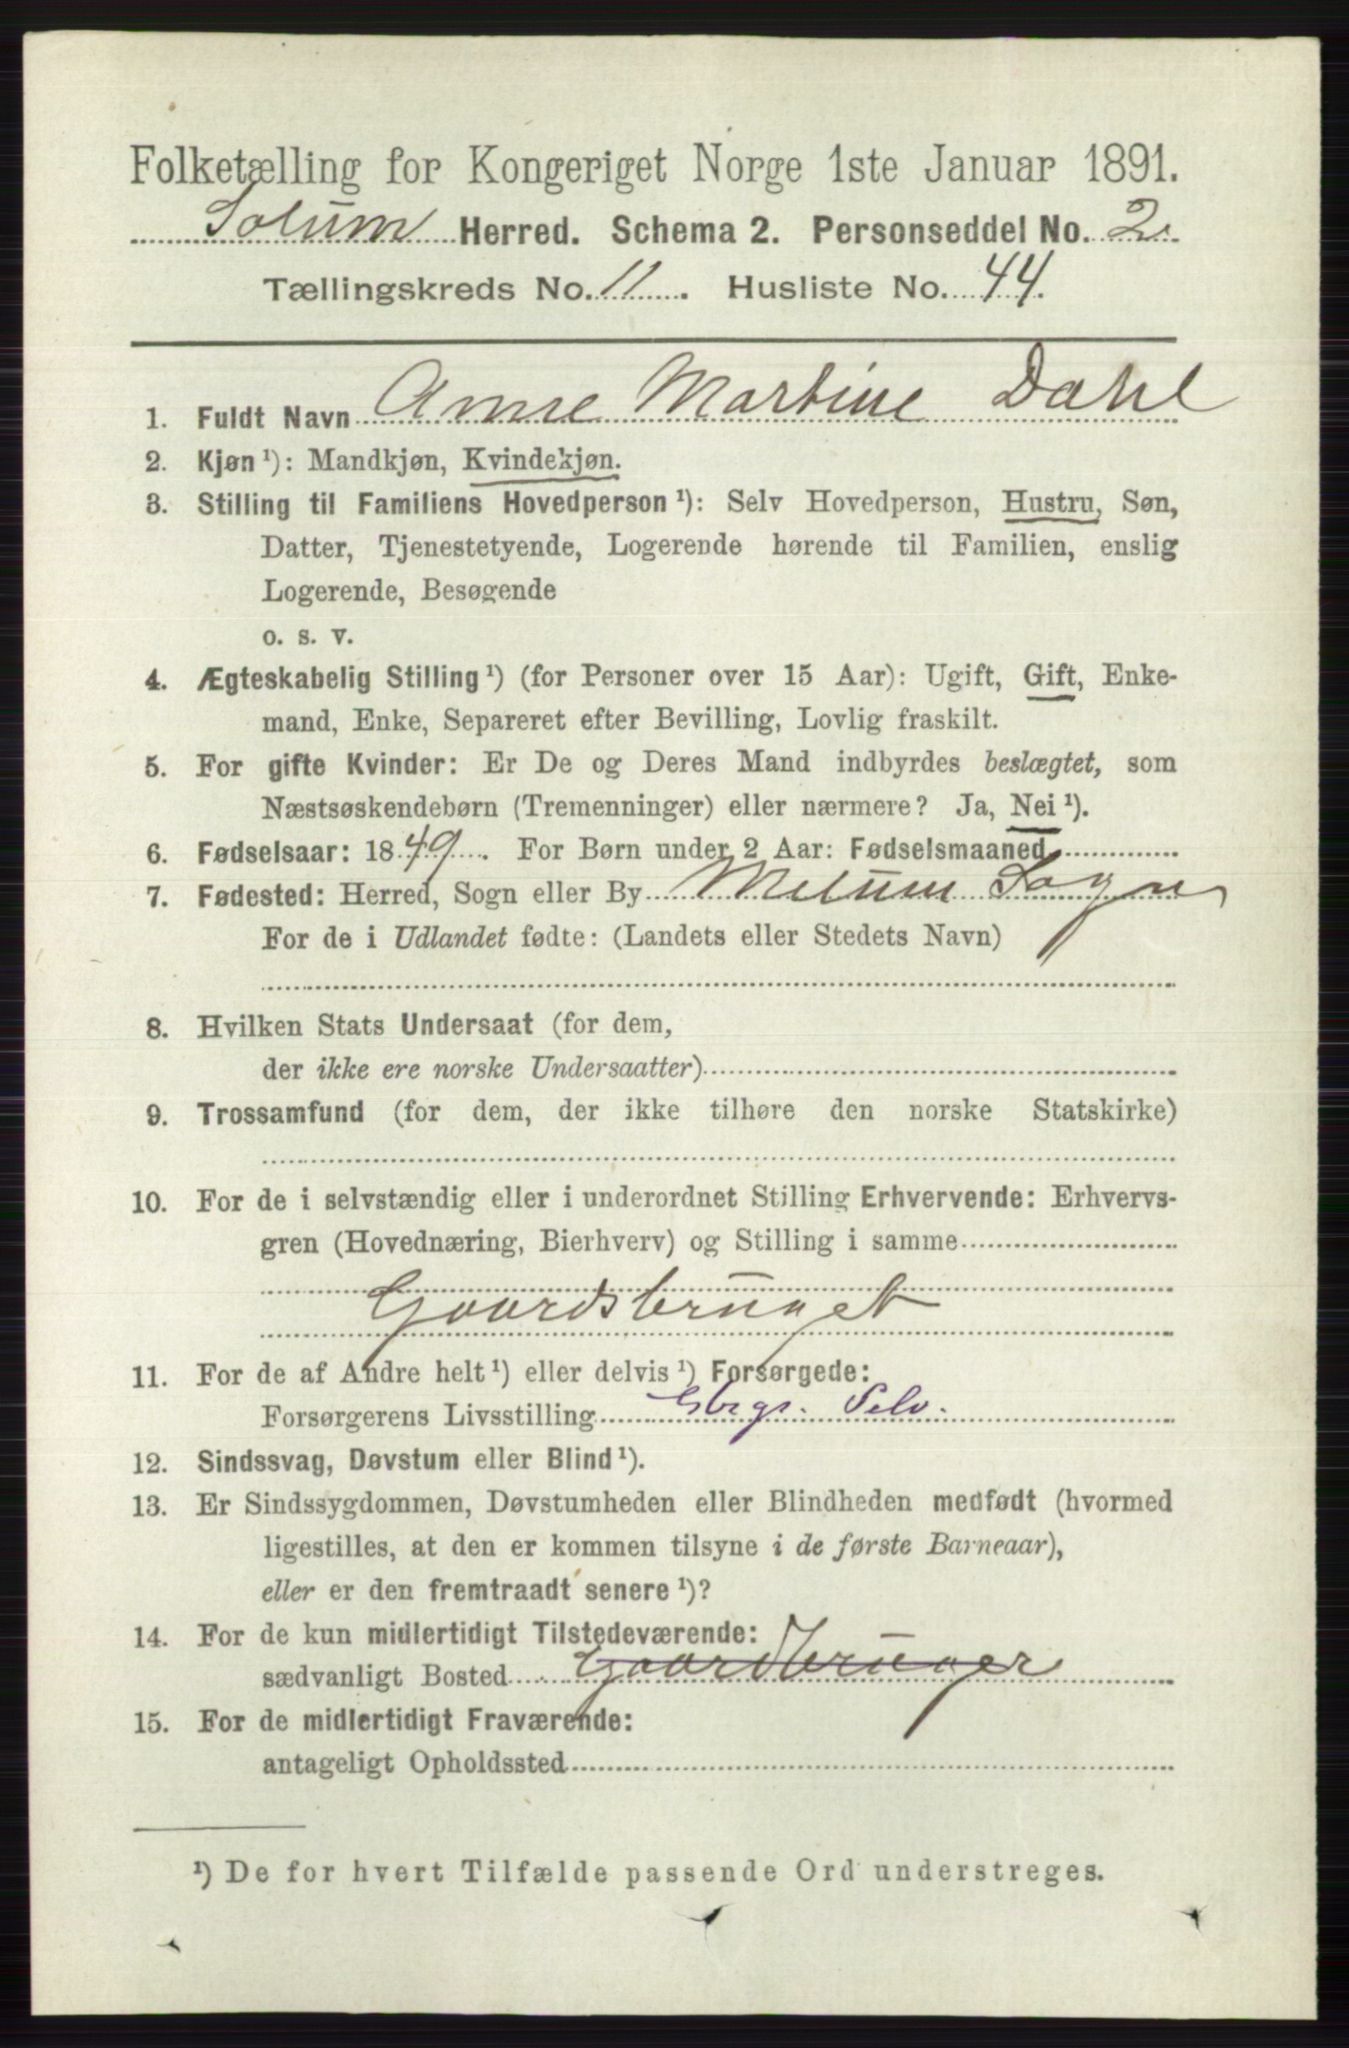 Folketælling for Kongeriget Norge 1ste Januar 1891.
Solum Herred. Schema 2. Personseddel No. 2.
Tællingskreds No. 11. Husliste No. 44.
1. Fuldt Navn Anne Martine Dahl
2. Kjøn ¹): Mandkjøn, Kvindekjøn.
3. Stilling til Familiens Hovedperson ¹): Selv Hovedperson, Hustru, Søn,
Datter, Tjenestetyende, Logerende hørende til Familien, enslig
Logerende, Besøgende
o. s. v.
4. Ægteskabelig Stilling ¹) (for Personer over 15 Aar): Ugift, Gift, Enke-
mand, Enke, Separeret efter Bevilling, Lovlig fraskilt.
5. For gifte Kvinder: Er De og Deres Mand indbyrdes beslægtet, som
Næstsøskendebørn (Tremenninger) eller nærmere? Ja, Nei ¹).
6. Fødselsaar: 1849. For Børn under 2 Aar: Fødselsmaaned
7. Fødested: Herred, Sogn eller By Melum Sogn
For de i Udlandet fødte: (Landets eller Stedets Navn)
8. Hvilken Stats Undersaat (for dem,
der ikke ere norske Undersaatter)
9. Trossamfund (for dem, der ikke tilhøre den norske Statskirke)
10. For de i selvstændig eller i underordnet Stilling Erhvervende: Erhvervs-
gren (Hovednæring, Bierhverv) og Stilling i samme
Gaardsbruget
11. For de af Andre helt ¹) eller delvis ¹) Forsørgede:
Forsørgerens Livsstilling Gbrgr. Selv.
12. Sindssvag, Døvstum eller Blind ¹).
13. Er Sindssygdommen, Døvstumheden eller Blindheden medfødt (hvormed
ligestilles, at den er kommen tilsyne i de første Barneaar),
eller er den fremtraadt senere ¹)?
14. For de kun midlertidigt Tilstedeværende:
sædvanligt Bosted Gaardbruger
15. For de midlertidigt Fraværende:
antageligt Opholdssted
¹) De for hvert Tilfælde passende Ord understreges.